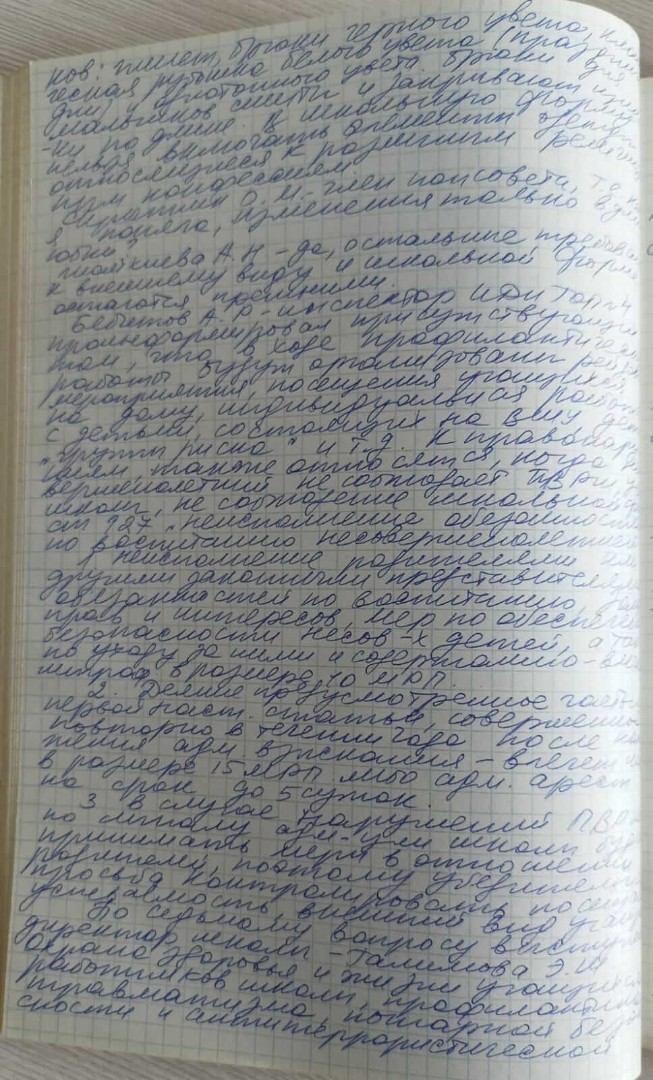 ков: жилет, брюки черного цвета, клас
ческая рубашка белого цвета (праздни
дни) и однотонного цвета. Брюки для
мальчиков
-ки по длине. В школьную форму
нельзя включать элементы одежды
относящиеся к различным религи
ным конфессиям.
О. И. - член попсовета, т.е. к
я поняла, изменения только в
юбки?
А.Н - да, остальные требован
к внешнему виду и школьной форме
остаются прежними.
А. Р - инспектор ИДН
проинформировал присутствующих
том, что в ходе профилактическ
работы будут организованы рейд
мероприятия, посещения учащихся
на дому, индивидуальная работ
с детьми, состоящих на ВШУ, дет
"группы риска" и т.д. К правонар
шениям также относятся, когда не
вершеннолетний не соблюдает ПВР
школы, не соблюдение школьной ф
ст 127 „неисполнение обезанностей
по воспитанию несовершеннолетнем
1 неисполнение родителями или
другими законными представителям
обезанностей по воспитанию, защ
прав и интересов, мер по обеспечен
безопасности несов-х детей, а так
по уходу за ними и содержанию - вле
штраф в размере 10 МРП.
2. Деяние предусмотренное часть
первой наст. статьи, совершенное
повторно в течении года после нало
жения адм. взыскания - влечет шт
в размере 15 МРП либо адм. арест
на срок до 5 суток.
3 В случае нарушений ПВР
по этому адм-ция школы буд
принимать меры в отношении
родителей, поэтому убедительн
просьба контролировать посещае
успеваемость внешний вид учащ
По седьмому вопросу выступи
директор школы - Галимова Э.Ш
Охрана здоровья и жизни учащихся
работников школы, профилактика
травматизма, пожарной безоп
сности и антитеррористической